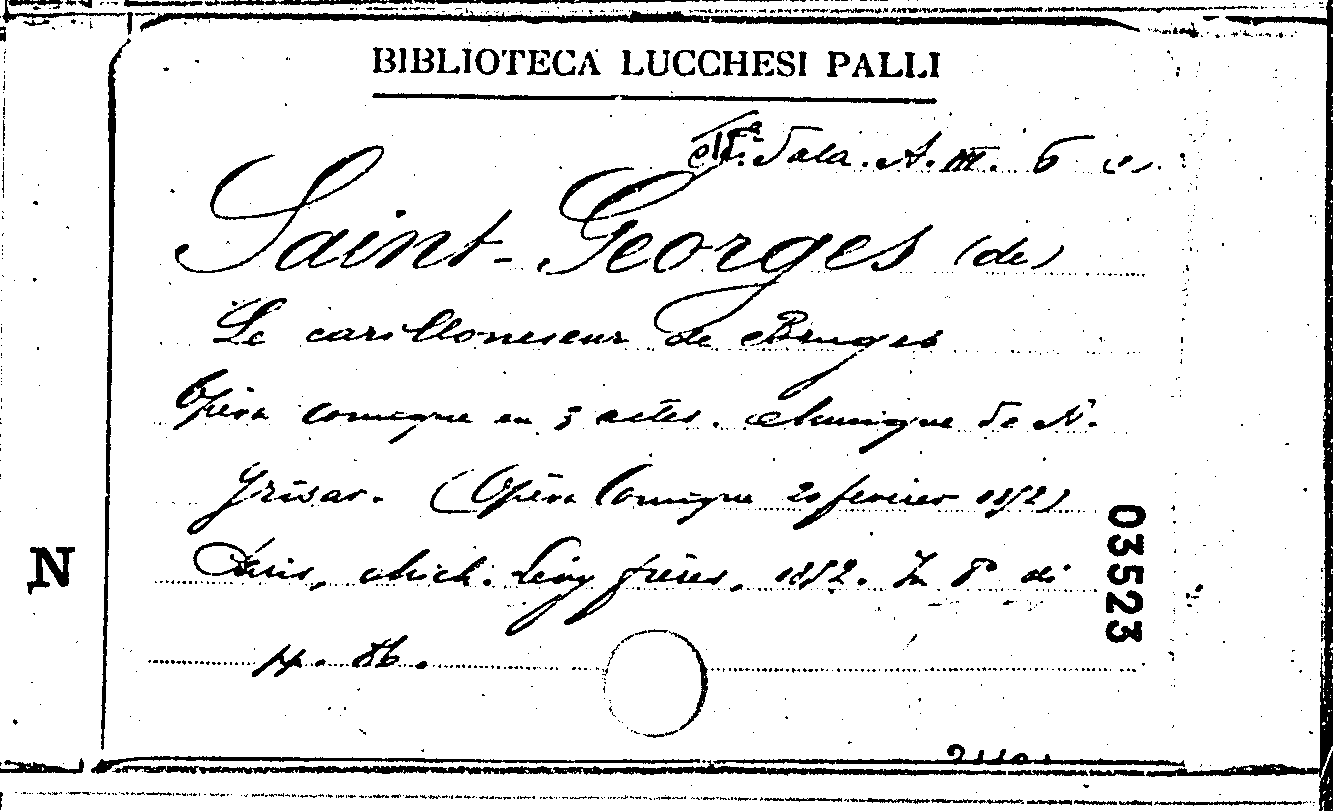 BIBLIOTECA LUCCHESI PALLI
Sala. A. III. 6
Saint-Georges (de)
Le carilloneseur de Bruges
Opéra comique en 3 actes. Musique de M.
Grisar. (Opéra Comique 20 fevrier 1852)
Paris, Mich. Levy frères, 1852. In 8° di
p. 86.
N
03523